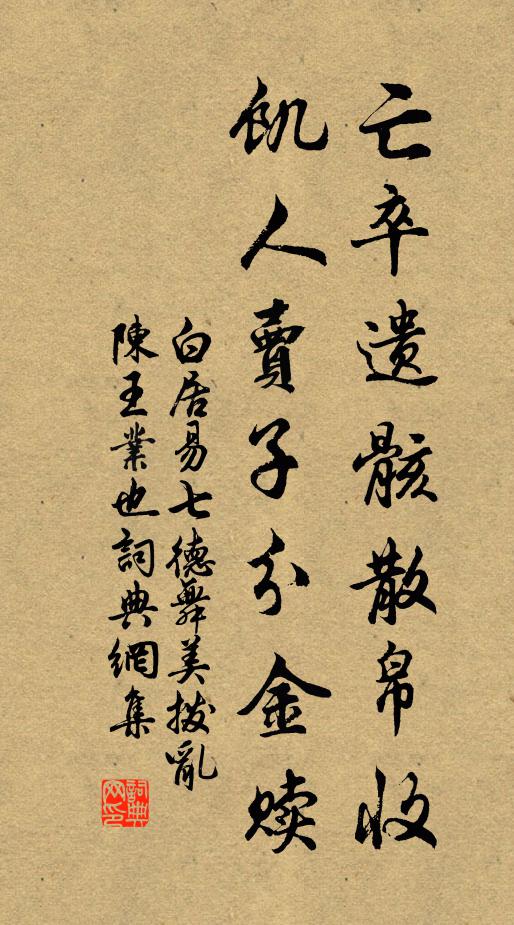 亡卒遺骸散帛收
飢人賣子分金贖
白居易七德舞美撥亂
陳王業也詞典網集
詞典网印